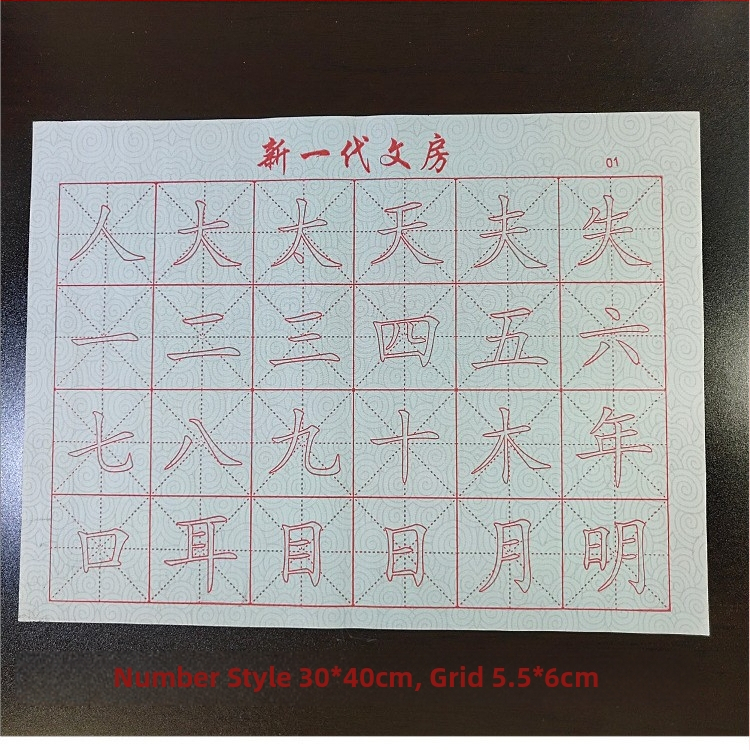 新一代文房
01
人大太天夫失
一二三四五六
七八九十木年
口耳目日月明
Number Style 30*40cm, Grid 5.5*6cm